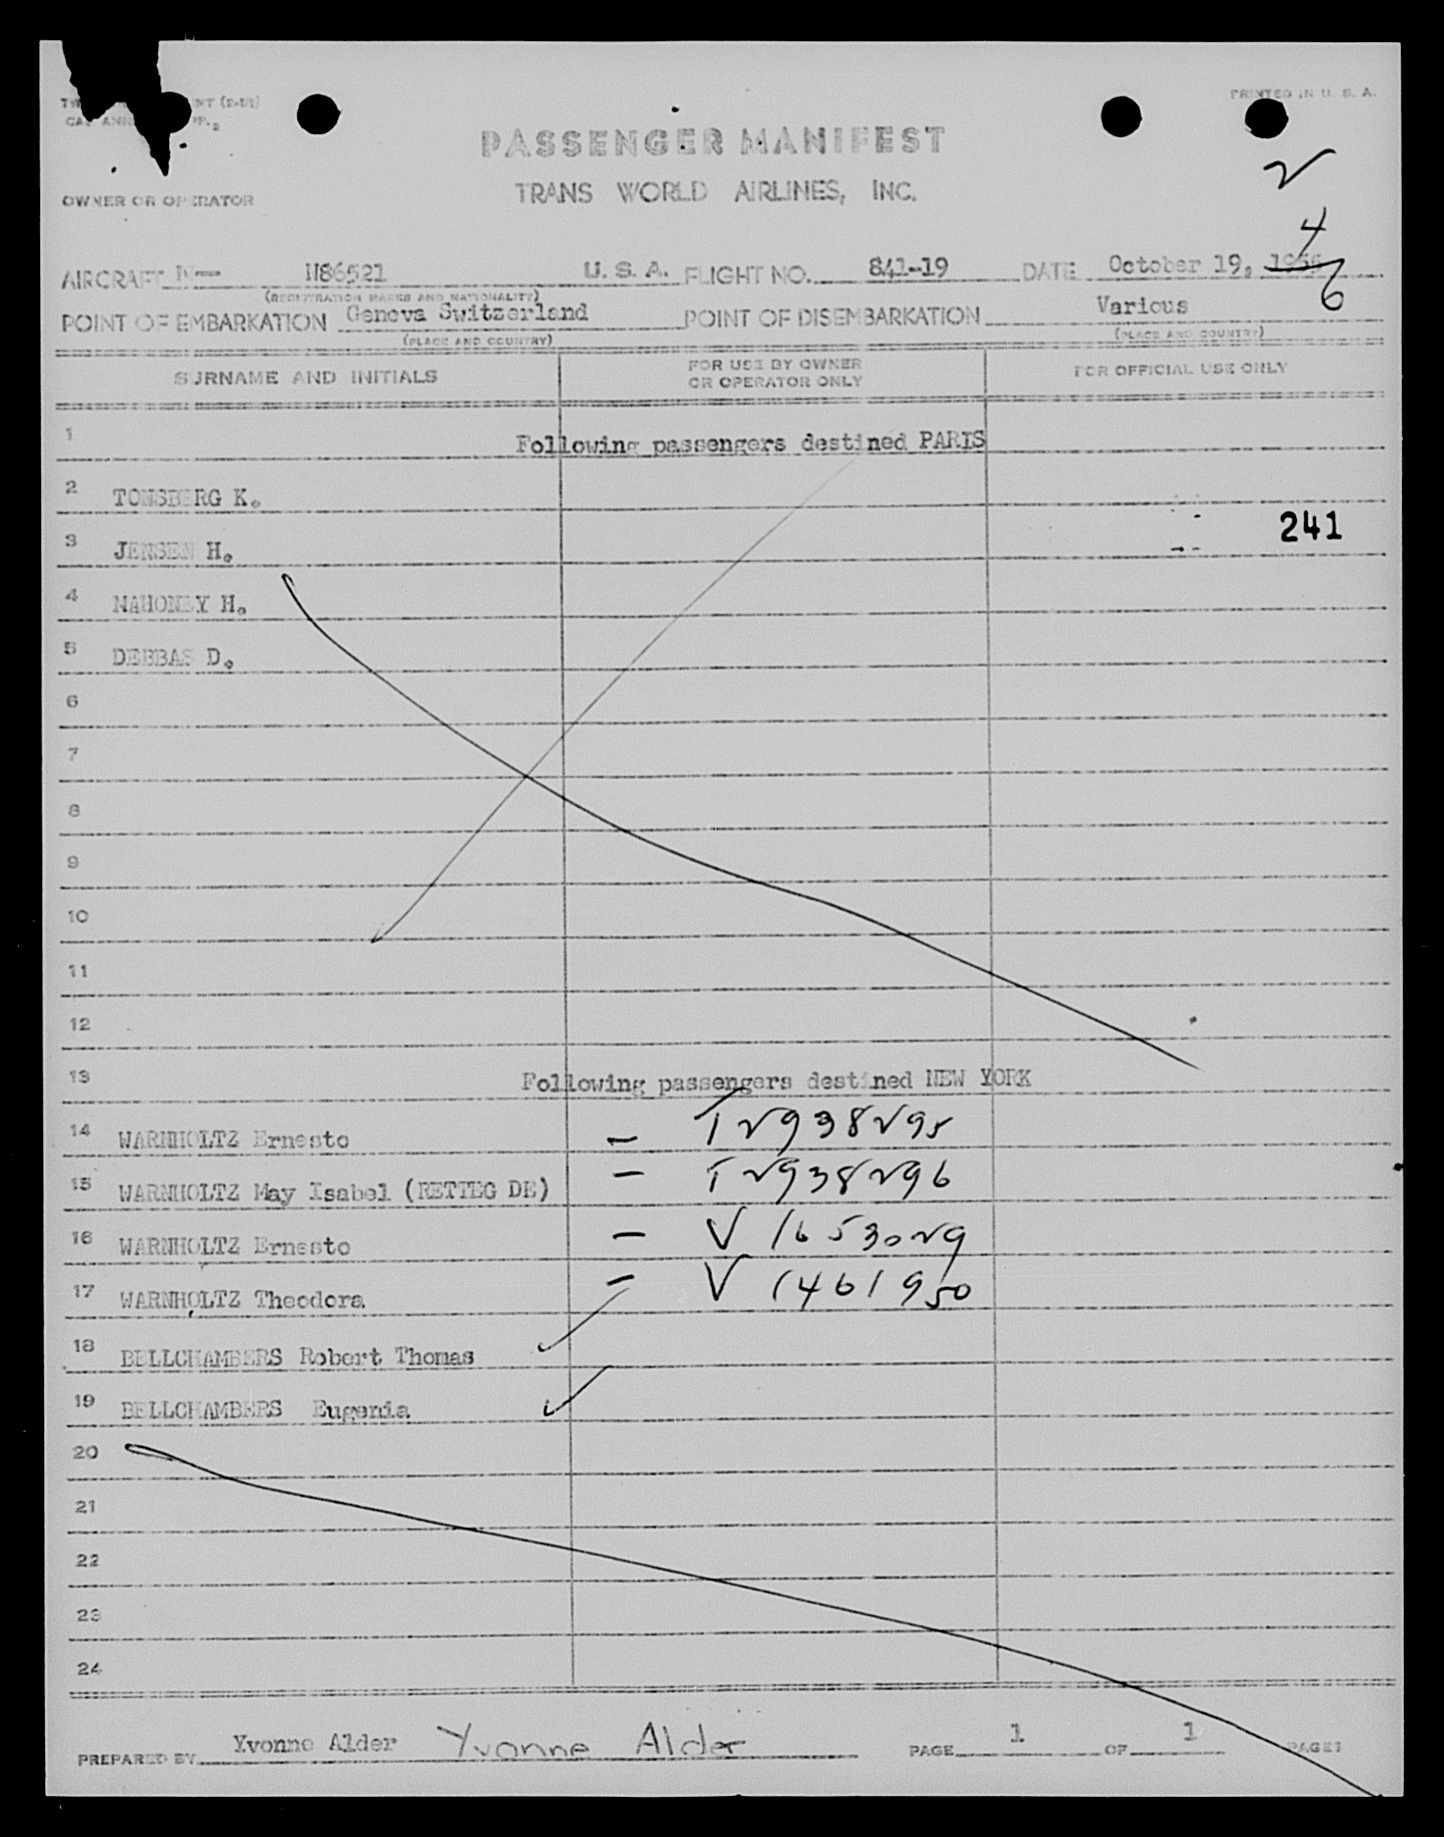 PRINTED IN U. S. A.
PASSENGER MANIFEST
TRANS WORLD AIRLINES, INC.
2
OWNER OR OPERATOR
4
6
AIRCRAFT N— N86521 U. S. A. FLIGHT NO. 841-19 DATE October 19,
(REGISTRATION MARKS AND NATIONALITY)
POINT OF EMBARKATION Geneva Switzerland POINT OF DISEMBARKATION Various
(PLACE AND COUNTRY) (PLACE AND COUNTRY)
SURNAME AND INITIALS FOR USE BY OWNER OR OPERATOR ONLY FOR OFFICIAL USE ONLY
1 Following passengers destined PARIS
2 TONSBERG K.
241
3 JENSEN H.
4 MAHONEY H.
5 DEBBAS D.
6
7
8
9
10
11
12
13 Following passengers destined NEW YORK
14 WARNHOLTZ Ernesto — T2938295
15 WARNHOLTZ May Isabel (RETTEG DE) — T2938296
16 WARNHOLTZ Ernesto — V 1653029
17 WARNHOLTZ Theodora — V 1461950
18 BELLCHAMBERS Robert Thomas ✓
19 BELLCHAMBERS Eugenia ✓
20
21
22
23
24
PREPARED BY Yvonne Alder Yvonne Alder PAGE 1 OF 1 PAGES